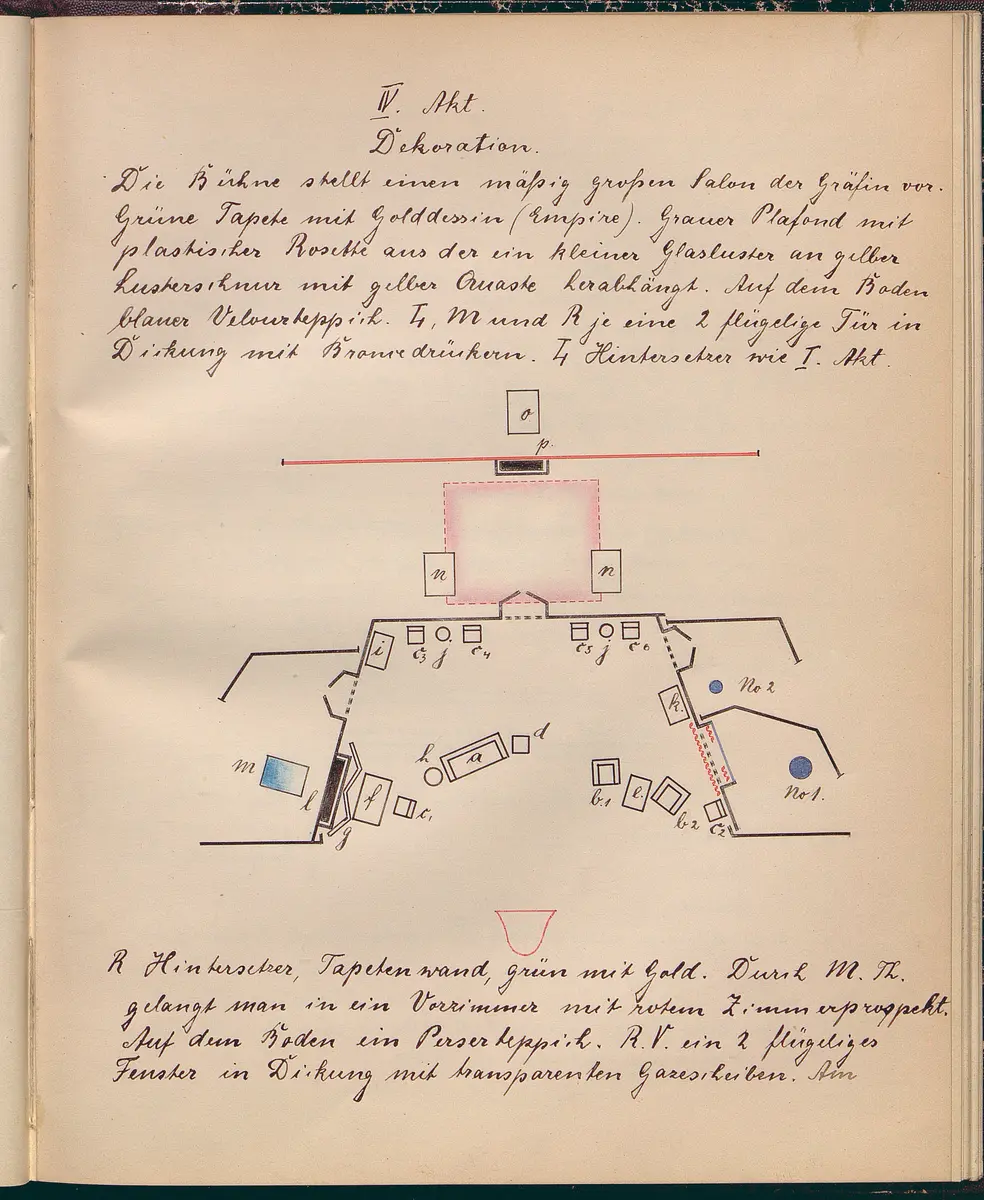 IV. Akt.
Dekoration.
Die Bühne stellt einen mäßig großen Salon der Gräfin vor.
Grüne Tapete mit Golddessin (Empire). Grauer Plafond mit
plastischer Rosette aus der ein kleiner Glasluster an gelber
Lusterschnur mit gelber Quaste herabhängt. Auf dem Boden
blauer Velourteppich. L, M und R je eine 2 flügelige Tür in
Dickung mit Broncedrückern. L Hintersetzer wie I. Akt.
o
p.
n n
i c3 j c4 c5 j c6
k. No 2
m l g f c1 h a d
b1 e. b2 c2 No 1.
R Hintersetzer, Tapetenwand, grün mit Gold. Durch M. Th.
gelangt man in ein Vorzimmer mit rotem Zimmerprospekt.
Auf dem Boden ein Perserteppich. R. V. ein 2 flügeliges
Fenster in Dickung mit transparenten Gazescheiben. Am